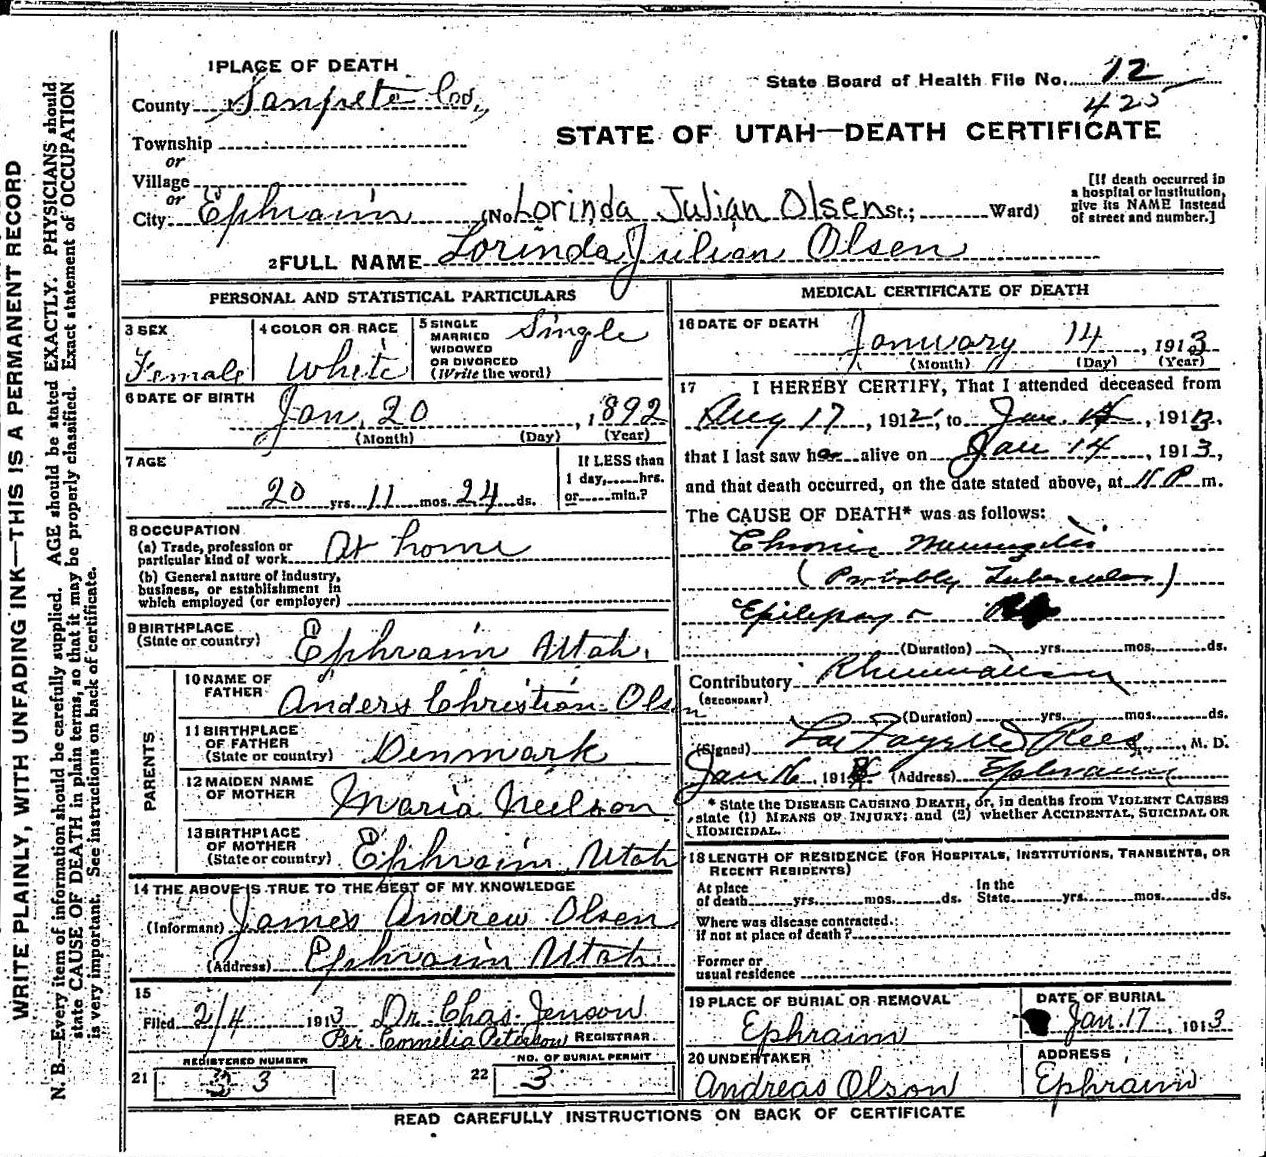 WRITE PLAINLY, WITH UNFADING INK—THIS IS A PERMANENT RECORD
N. B.—Every item of information should be carefully supplied. AGE should be stated EXACTLY. PHYSICIANS should
state CAUSE OF DEATH in plain terms, so that it may be properly classified. Exact statement of OCCUPATION
is very important. See instructions on back of certificate.
1 PLACE OF DEATH
State Board of Health File No. 12
425
County Sanpete Co.,
STATE OF UTAH—DEATH CERTIFICATE
Township
or
Village
or
City Ephraim (No. Lorinda Julian Olsen St.; Ward)
[If death occurred in
a hospital or institution,
give its NAME instead
of street and number.]
2 FULL NAME Lorinda Julian Olsen
PERSONAL AND STATISTICAL PARTICULARS
3 SEX
Female
4 COLOR OR RACE
White
5 SINGLE
MARRIED
WIDOWED
OR DIVORCED
(Write the word)
Single
6 DATE OF BIRTH
Jan. 20, 1892
(Month) (Day) (Year)
7 AGE
20 yrs. 11 mos. 24 ds.
If LESS than
1 day,......hrs.
or......min.?
8 OCCUPATION
(a) Trade, profession or
particular kind of work At home
(b) General nature of industry,
business, or establishment in
which employed (or employer)
9 BIRTHPLACE
(State or country) Ephraim Utah.
PARENTS
10 NAME OF
FATHER Anders Christian Olsen
11 BIRTHPLACE
OF FATHER
(State or country) Denmark
12 MAIDEN NAME
OF MOTHER Maria Neilson
13 BIRTHPLACE
OF MOTHER
(State or country) Ephraim, Utah
14 THE ABOVE IS TRUE TO THE BEST OF MY KNOWLEDGE
(Informant) James Andrew Olsen
(Address) Ephraim Utah
15
Filed 2/4 1913 Dr. Chas. Jenson
Per. Cornelia Peterson REGISTRAR
REGISTERED NUMBER
21 3
NO. OF BURIAL PERMIT
22 3
MEDICAL CERTIFICATE OF DEATH
16 DATE OF DEATH
January 14, 1913
(Month) (Day) (Year)
17 I HEREBY CERTIFY, That I attended deceased from
Aug 17, 1912, to Jan. 14, 1913,
that I last saw her alive on Jan 14, 1913,
and that death occurred, on the date stated above, at 11 P m.
The CAUSE OF DEATH* was as follows:
Chronic Meningitis
(Probably Tubercular)
Epilepsy
(Duration) yrs. mos. ds.
Contributory Rheumatism
(SECONDARY)
(Duration) yrs. mos. ds.
(Signed) La Fayette Rees, M. D.
Jan 16, 191 (Address) Ephraim
* State the DISEASE CAUSING DEATH, or, in deaths from VIOLENT CAUSES
state (1) MEANS OF INJURY; and (2) whether ACCIDENTAL, SUICIDAL OR
HOMICIDAL.
18 LENGTH OF RESIDENCE (FOR HOSPITALS, INSTITUTIONS, TRANSIENTS, OR
RECENT RESIDENTS)
At place
of death yrs. mos. ds.
In the
State yrs. mos. ds.
Where was disease contracted.
if not at place of death?
Former or
usual residence
19 PLACE OF BURIAL OR REMOVAL
Ephraim
DATE OF BURIAL
Jan. 17, 1913
20 UNDERTAKER
Andreas Olson
ADDRESS
Ephraim
READ CAREFULLY INSTRUCTIONS ON BACK OF CERTIFICATE